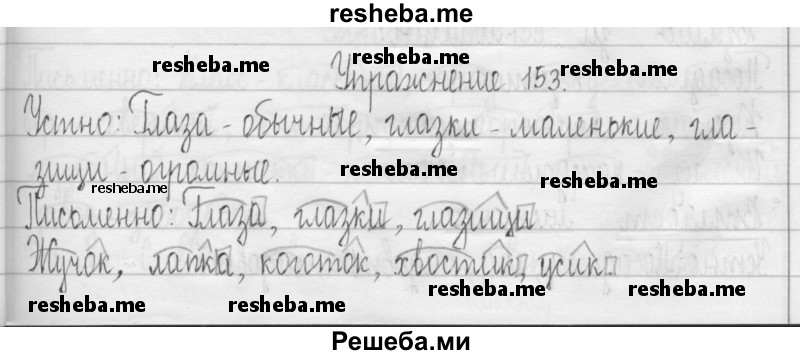 resheba.me
resheba.me resheba.me resheba.me
Упражнение 153.
Устно: Глаза - обычные, глазки - маленькие, гла-
зищи - огромные. resheba.me resheba.me
resheba.me
Письменно: Глаза, глазки, глазищи
Жучок, лапка, коготок, хвостик, усик
resheba.me resheba.me resheba.me resheba.me
Решеба.ми